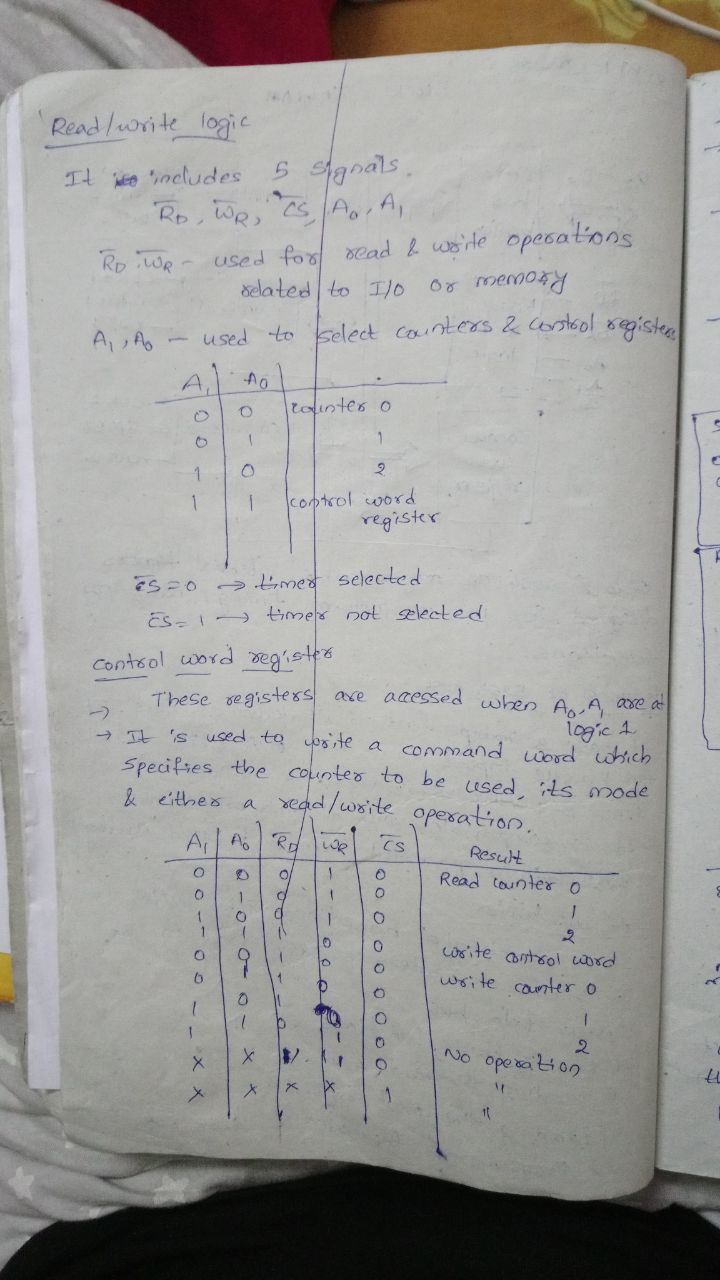 Read/write logic
It includes 5 signals.
R̅D, W̅R, C̅S, A0, A1
R̅D, W̅R - used for read & write operations
related to I/O or memory
A1, A0 - used to select counters & control registers
A1 A0
0 0 counter 0
0 1 1
1 0 2
1 1 control word
register
C̅S = 0 → timer selected
C̅S = 1 → timer not selected
control word register
→ These registers are accessed when A0, A1 are at
logic 1
→ It is used to write a command word which
specifies the counter to be used, its mode
& either a read/write operation.
A1 A0 R̅D W̅R C̅S Result
0 0 0 1 0 Read counter 0
0 1 0 1 0 1
1 0 0 1 0 2
1 1 1 0 0 write control word
0 0 1 0 0 write counter 0
0 1 1 0 0 1
1 0 1 0 0 2
1 1 0 1 0 No operation
X X 1 1 0 "
X X X X 1 "